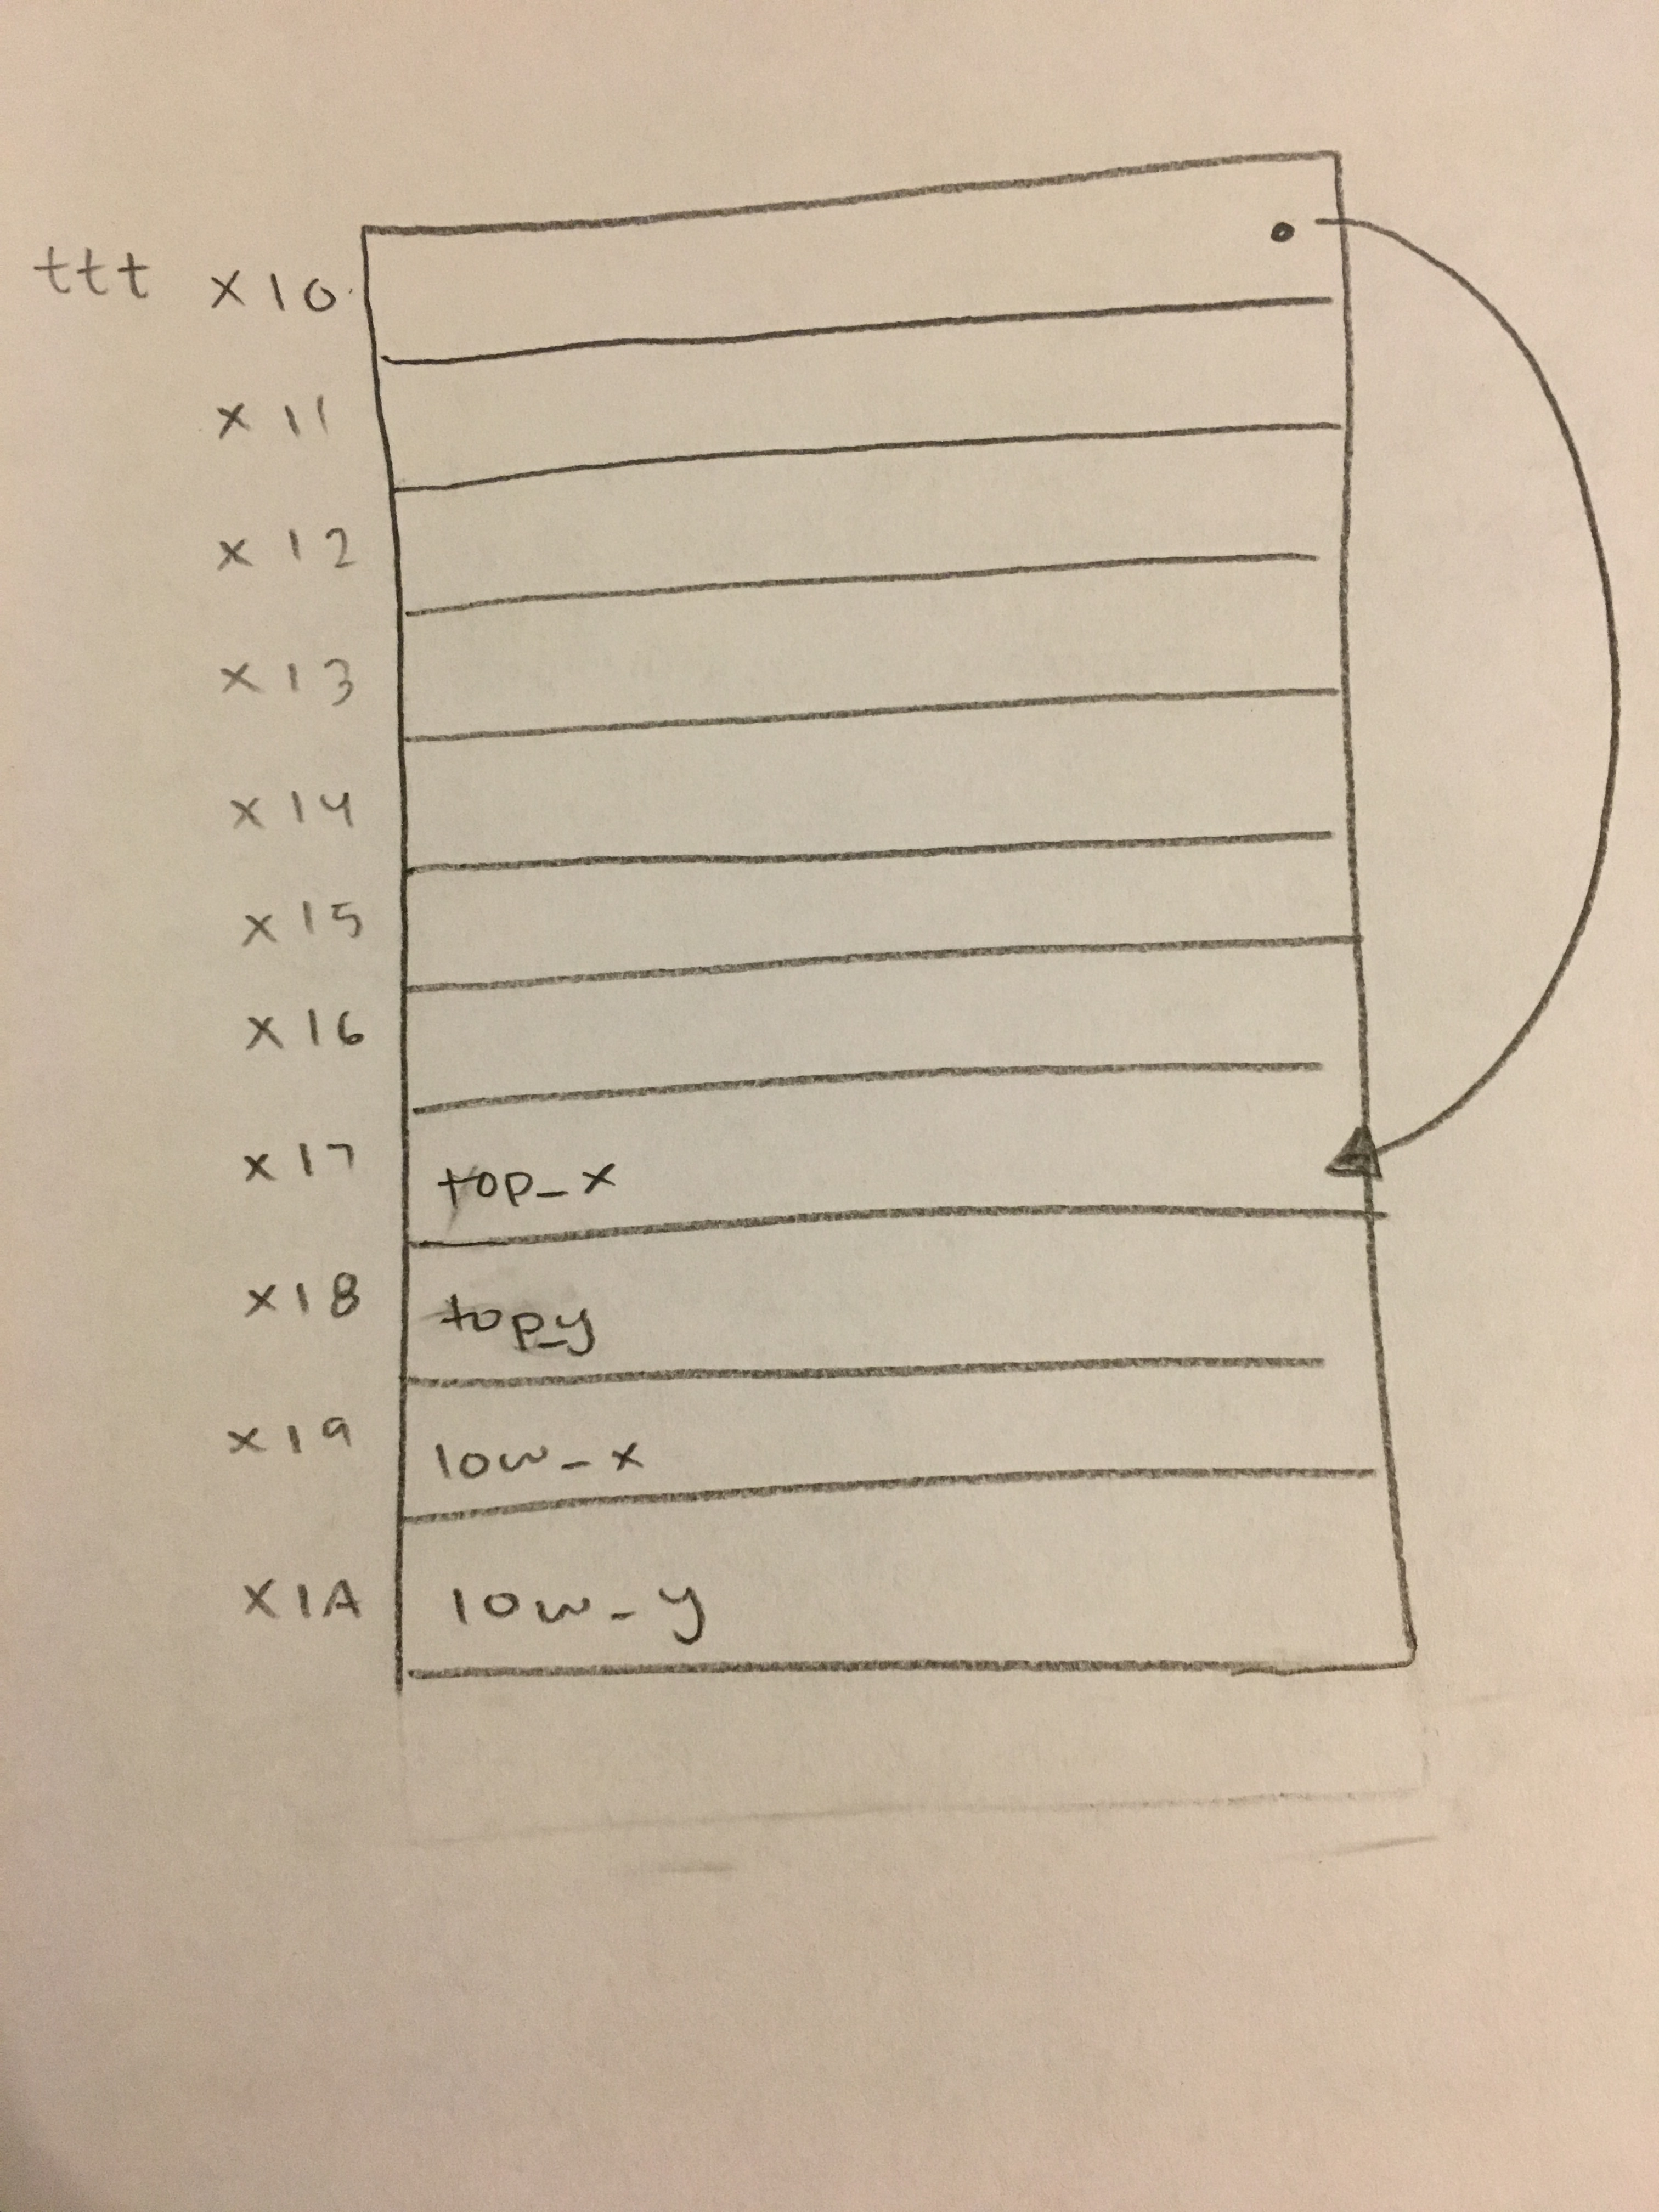 ttt x10
x11
x12
x13
x14
x15
x16
x17 top_x
x18 top_y
x19 low_x
x1A low_y